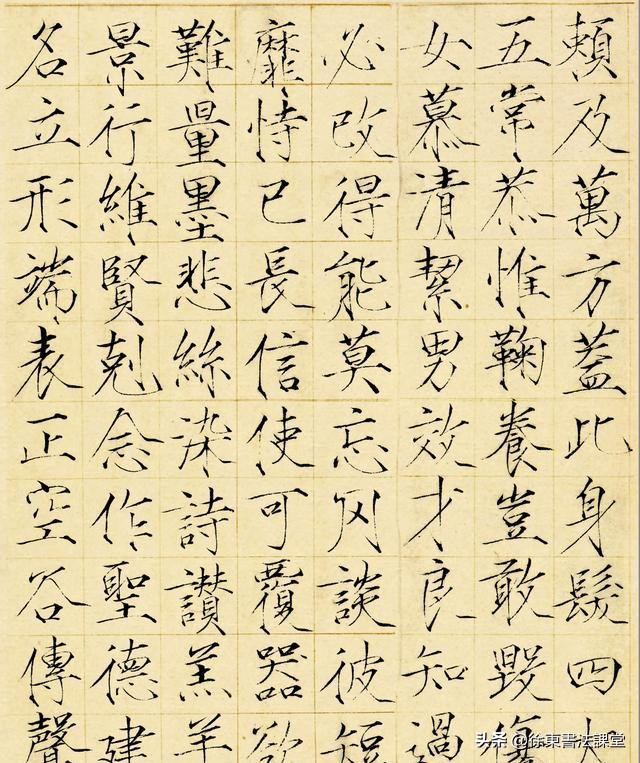 頼及萬方蓋此身髮四大
五常恭惟鞠養豈敢毀傷
女慕清絜男效才良知過
必改得能莫忘罔談彼短
靡恃己長信使可覆器欲
難量墨悲絲染詩讚羔羊
景行維賢剋念作聖德建
名立形端表正空谷傳聲
头条 @徐東書法課堂